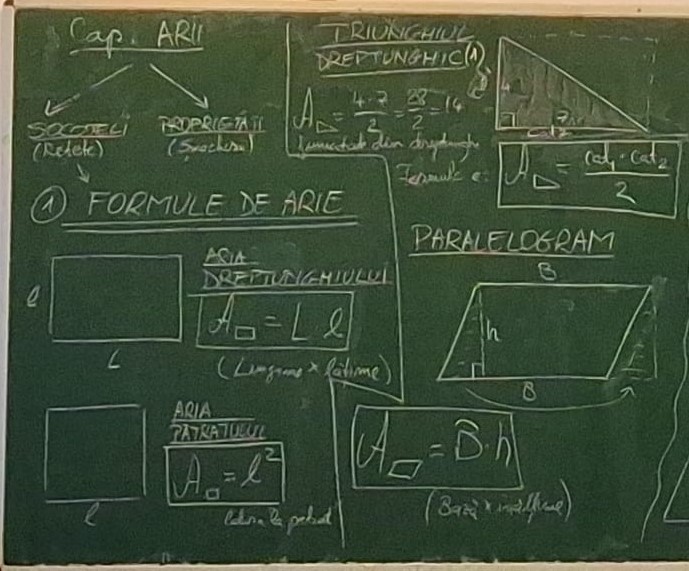 Cap. ARII
SOCOTELI
(Rețete)
PROPRIETĂȚI
(Smecherii)
① FORMULE DE ARIE
l
L
ARIA
DREPTUNGHIULUI
A▭ = L · l
(Lungime × lățime)
l
ARIA
PĂTRATULUI
A□ = l²
latura la pătrat
TRIUNGHIUL
DREPTUNGHIC (1)
A◺ = 4·7/2 = 28/2 = 14
jumătate din dreptunghi
4
7
cat2
Formula e:
A◺ = cat₁ · cat₂ / 2
PARALELOGRAM
B
h
B
A▱ = B·h
(Bază × înălțime)